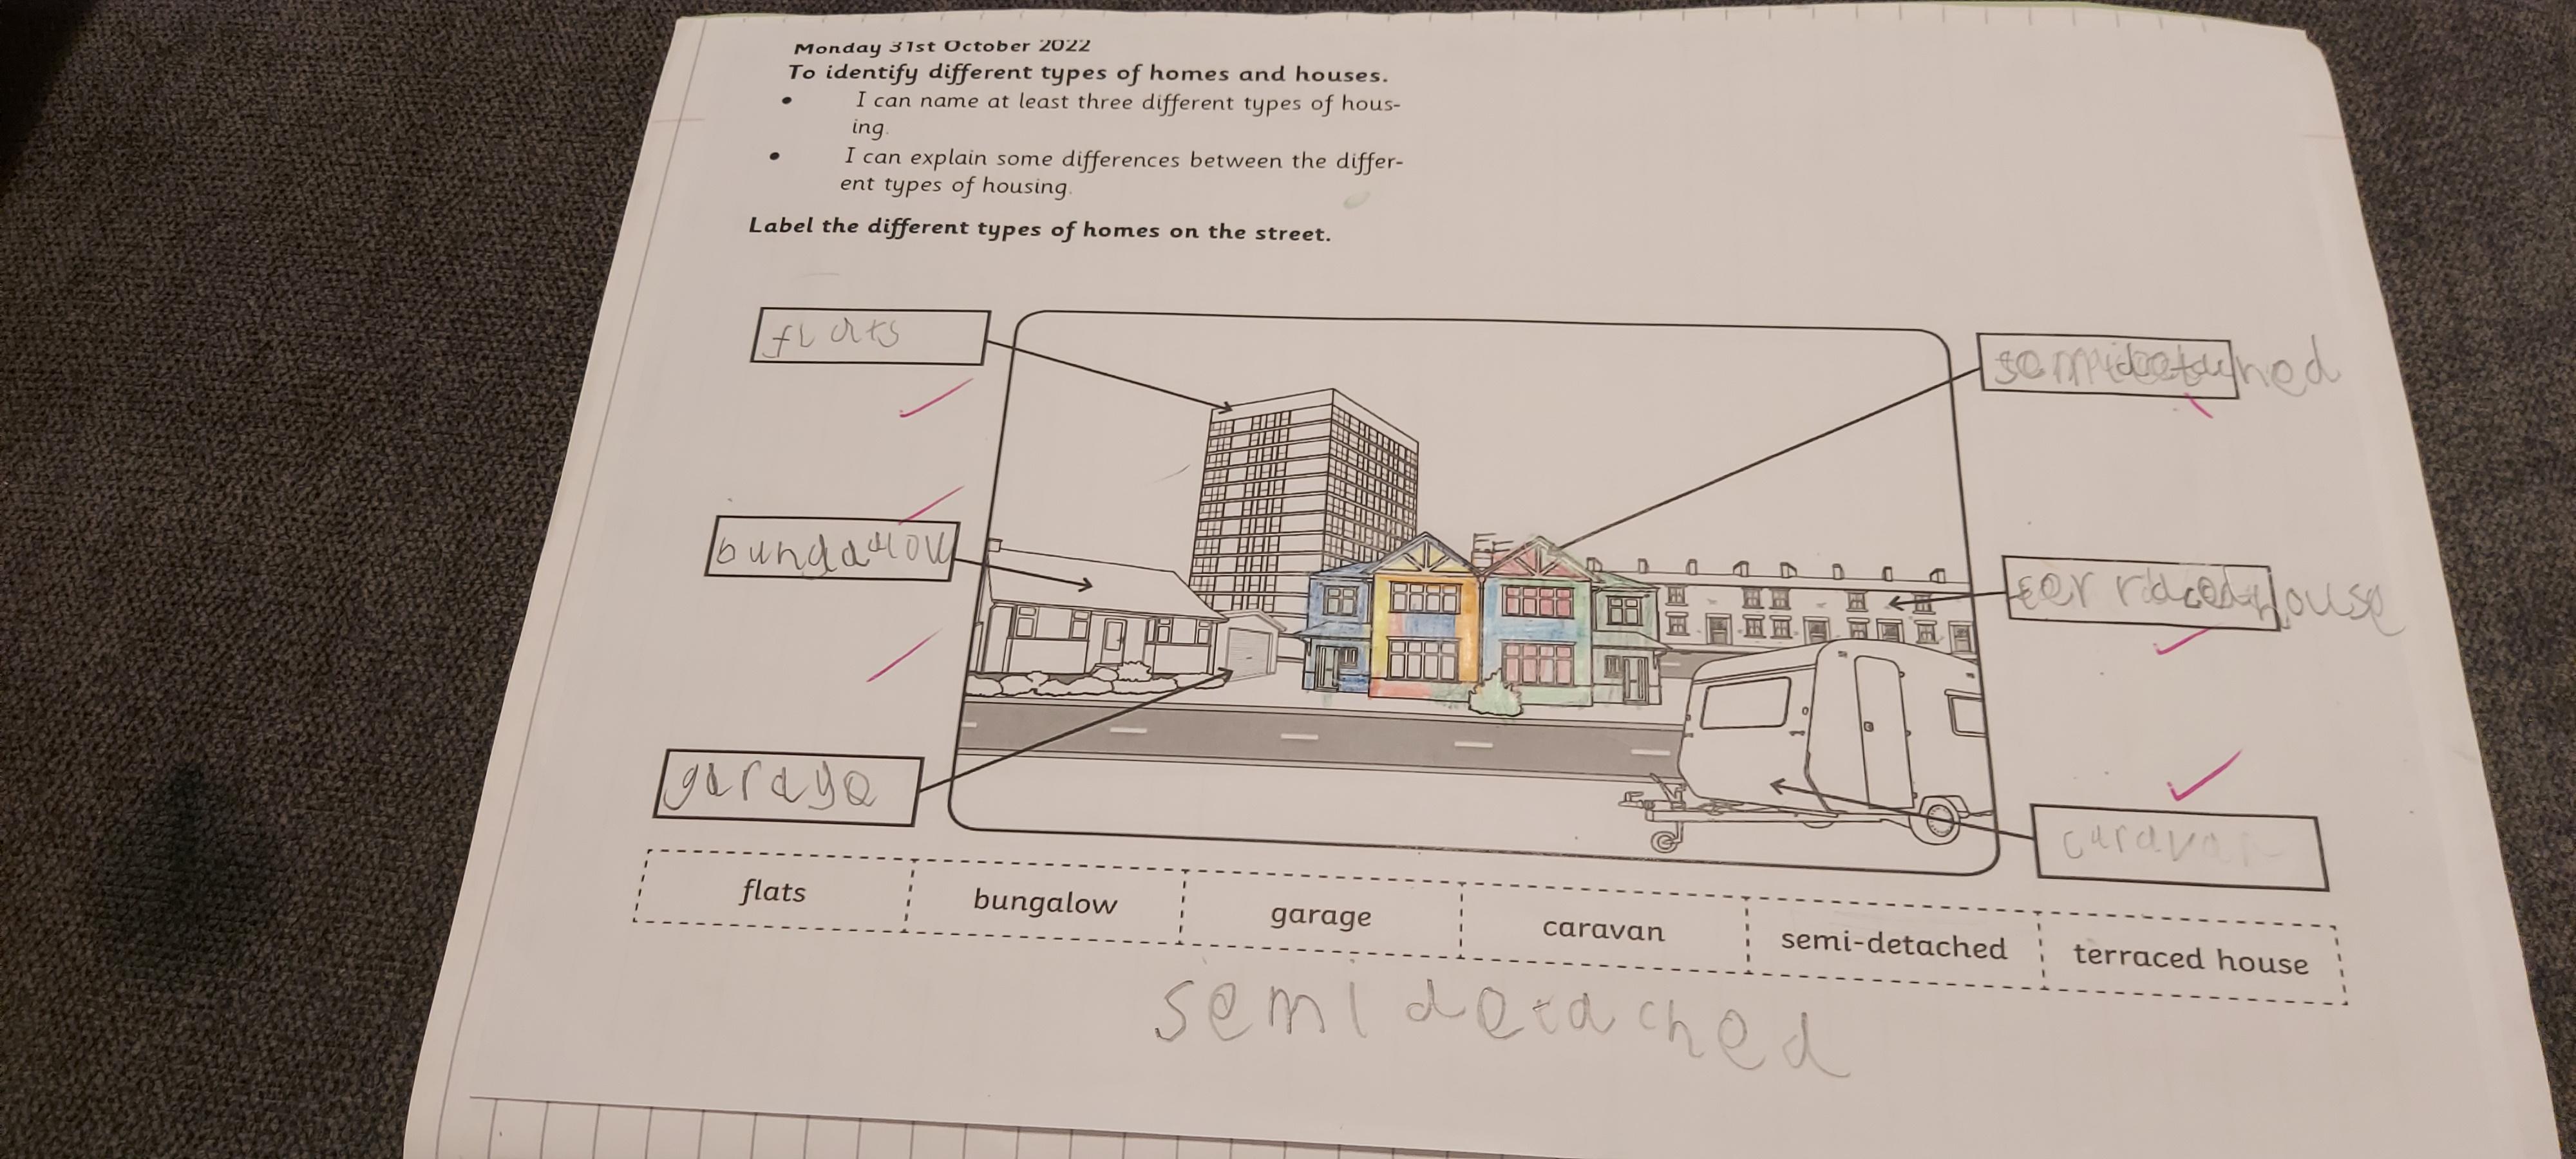 Monday 31st October 2022
To identify different types of homes and houses.
• I can name at least three different types of hous-
ing.
• I can explain some differences between the differ-
ent types of housing.
Label the different types of homes on the street.
flats
semidetached
bungalow
terraced house
garage
caravan
flats bungalow garage caravan semi-detached terraced house
semi detached